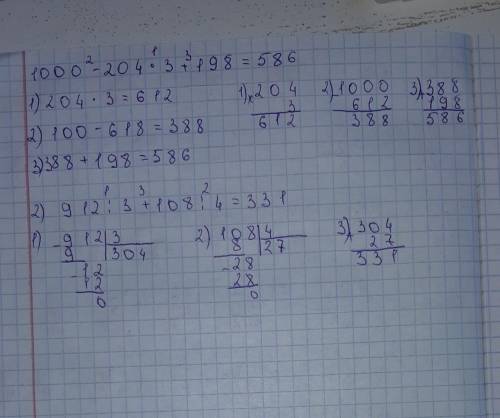 1000 ²- 204 ¹· 3 ³+ 198 = 586
1) 204 · 3 = 612
2) 100 - 618 = 388
3) 388 + 198 = 586
1) × 204
3
612
2) 1000
612
388
3) 388
198
586
2) 912 ¹: 3 ³+ 108 ²: 4 = 331
1) - 912 | 3
9 | 304
- 12
12
0
2) 108 | 4
8 | 27
- 28
28
0
3) 304
27
331